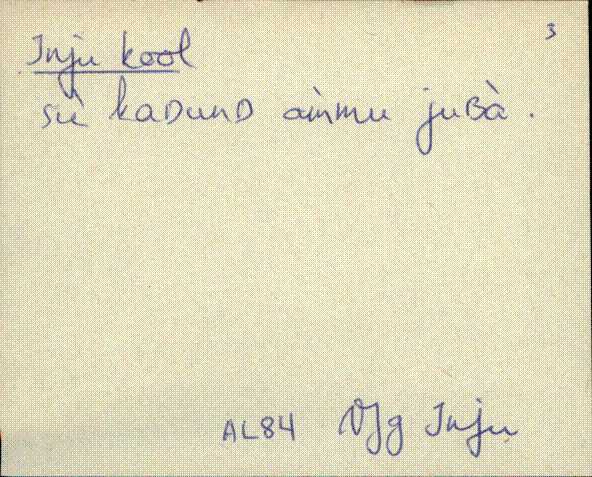 3
Inju kool
sìi kaDunD ammu juBà.
AL84 VJg Inju